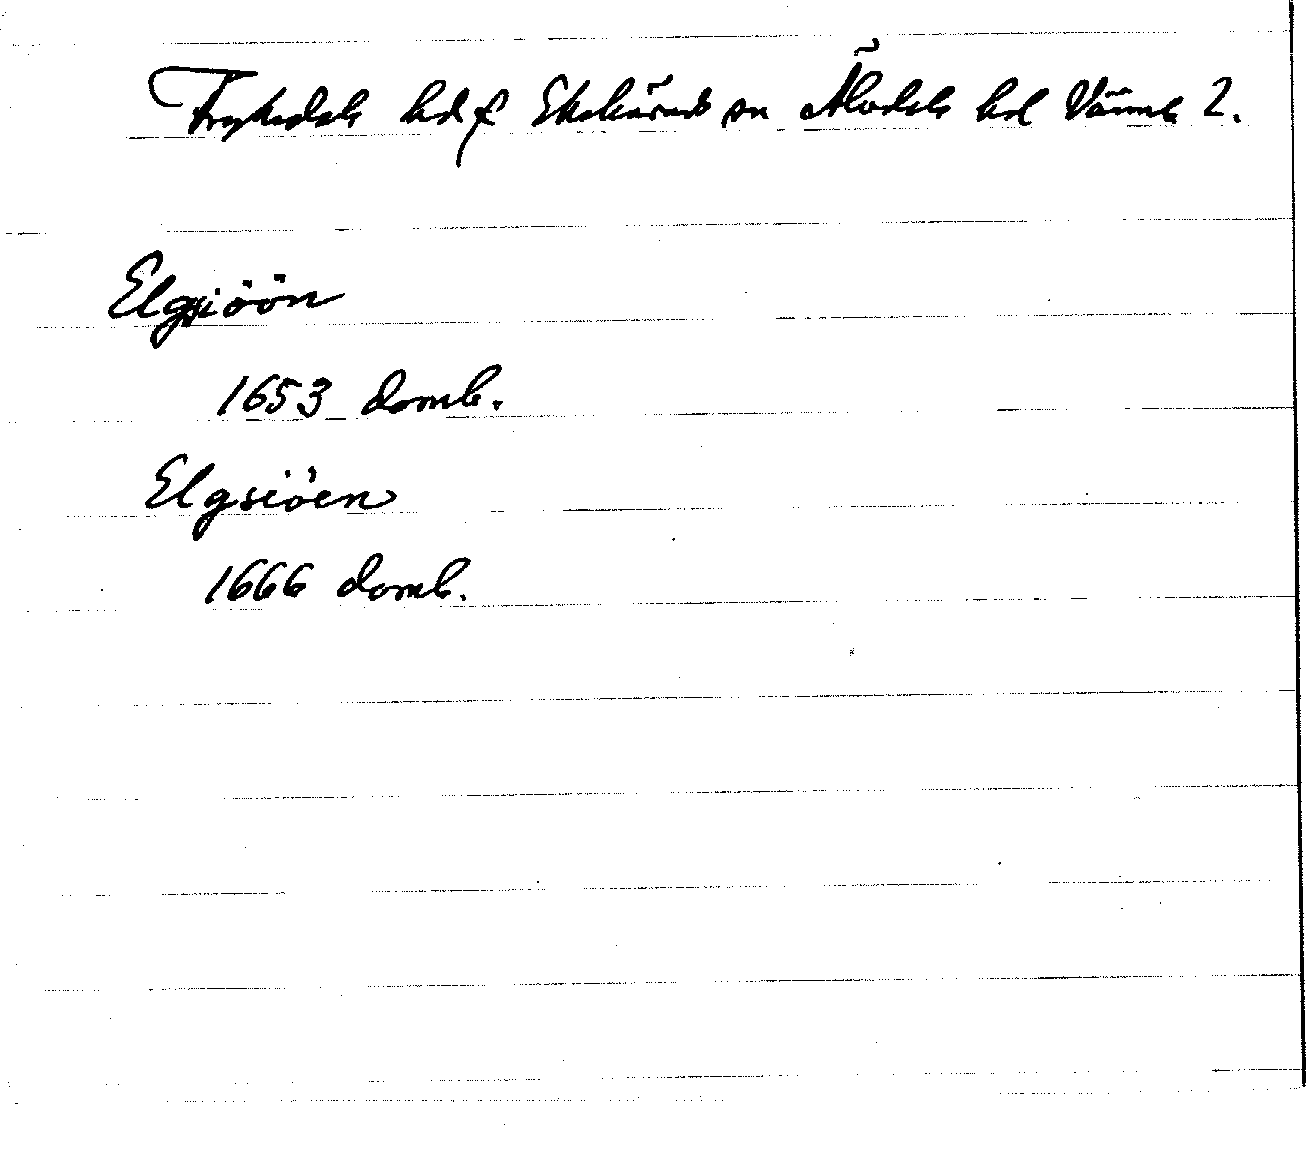 Fryksdals hd f Ekshärads sn Älvdals hd Värml 2.
Elgsiöön
1653 domb.
Elgsiöen
1666 domb.